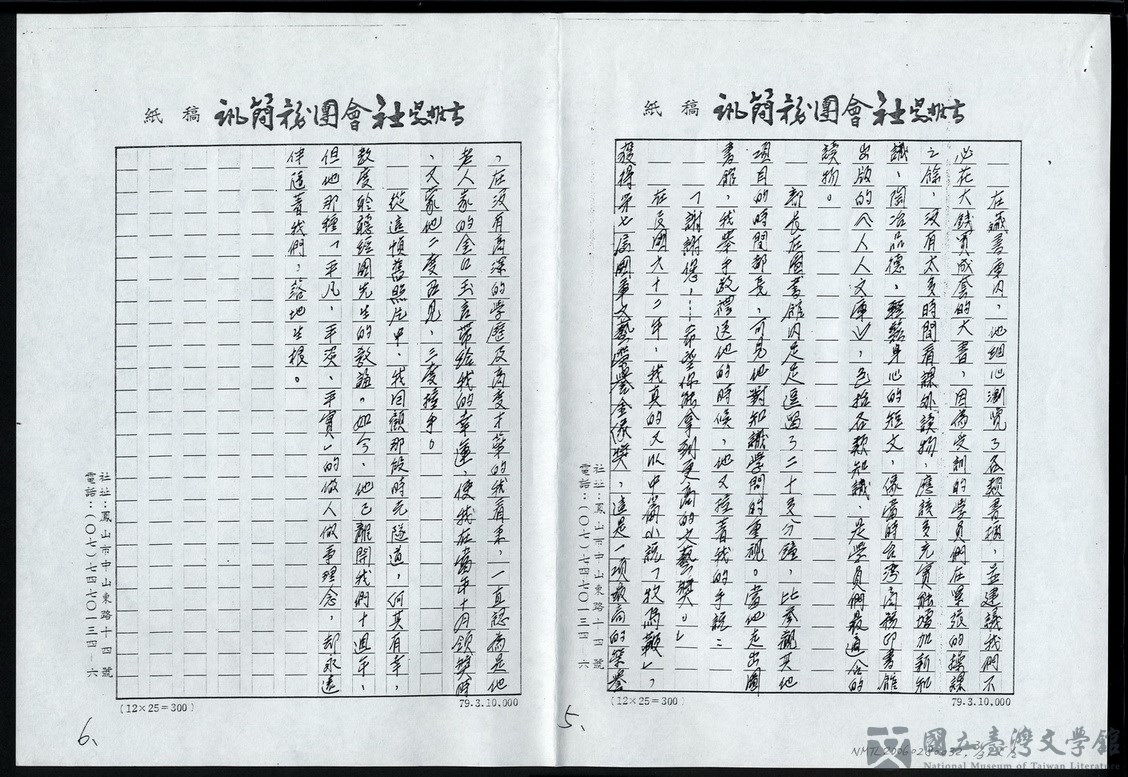 吳姓士社會團務簡訊 稿紙
在藏書庫內,他細心瀏覽了各類書櫃,並建議我們不
必花大錢買成套的大書,因為受訓的學員們在緊張的操課
之餘,沒有太多時間看課外讀物,應該多充實能增加新知
識、陶冶品德、輕鬆身心的短文,像當時台灣商務印書館
出版的《人人文庫》,包括各類知識,是學員們最適合的
讀物。
部長在圖書館內足足逗留了二十多分鐘,比參觀其他
項目的時間都長,可見他對知識學問的重視。當他走出圖
書館,我舉手敬禮送他的時候,他又握著我的手說:
「謝謝您,……希望你能拿到更高的文藝獎。」
在民國六十二年,我真的又以中篇小說「牧馬歌」,
獲得第七屆國軍文藝金像獎,這是一項最高的榮譽
社址:鳳山市中山東路十四號
電話:(〇七)七四七〇一三四-六
(12×25=300)
79.3.10,000
5、
稿紙
,在沒有高深的學歷及高度才華的我看來,一直認為是他
老人家的金口玉言帶給我的幸運,使我在當年十月領獎時
,又蒙他二度召見,三度握手。
從這幀舊照片中,我回顧那段時光隧道,何其有幸,
數度聆聽經國先生的教誨。如今,他已離開我們十週年,
但他那種「平凡、平淡、平實」的做人做事理念,卻永遠
伴隨著我們,落地生根。
社址:鳳山市中山東路十四號
電話:(〇七)七四七〇一三四-六
(12×25=300)
79.3.10,000
6、
國立臺灣文學館
National Museum of Taiwan Literature